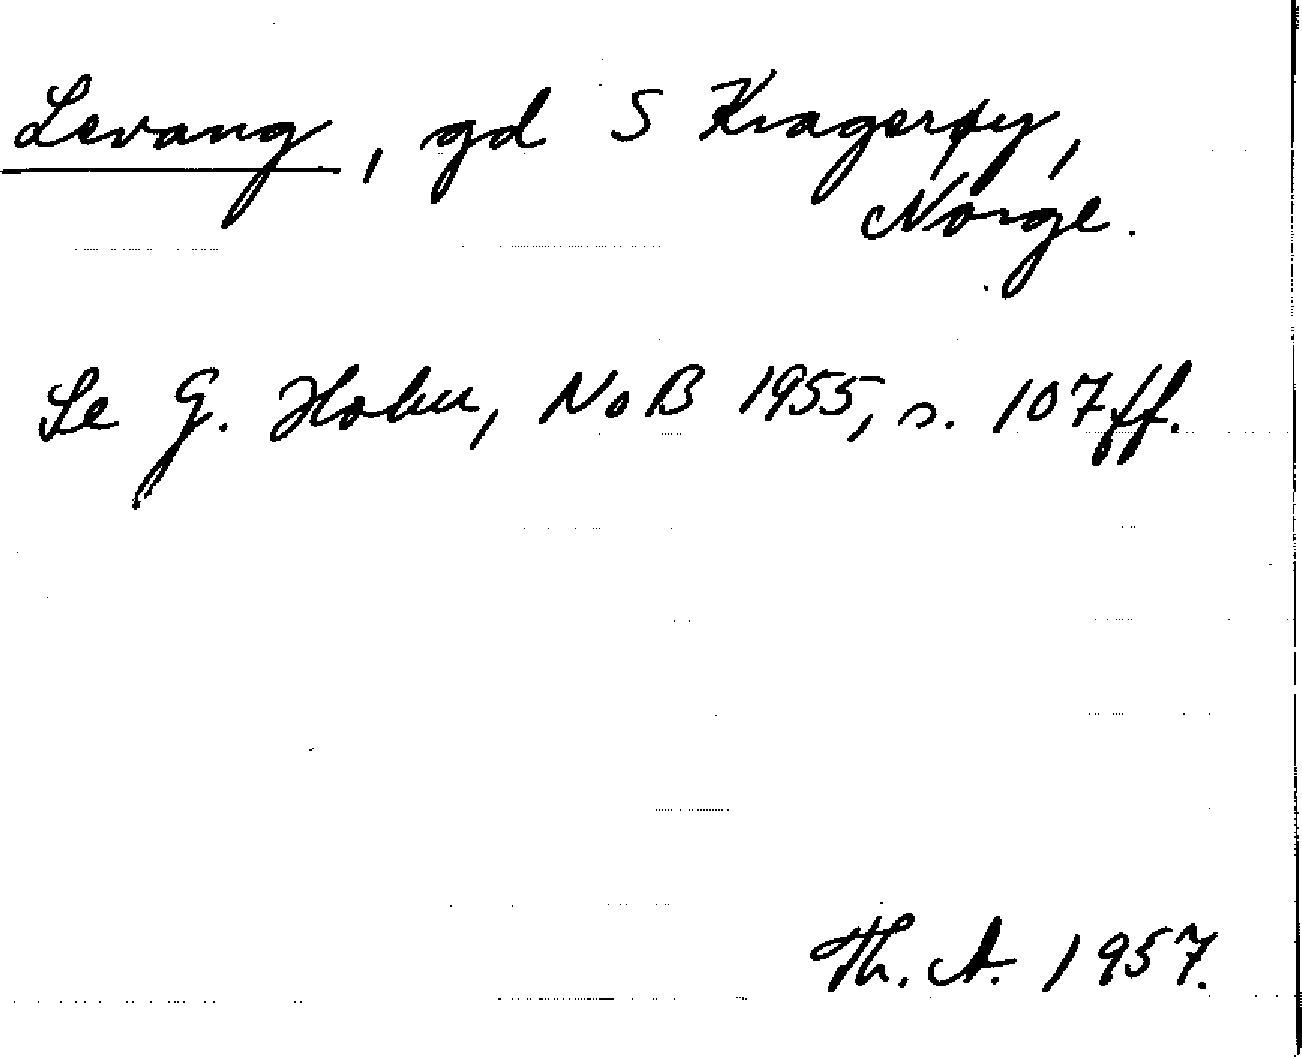 Levang, gd S Kragerøy,
Norge.
Se G. Holm, NoB 1955, s. 107 ff.
Th. A. 1957.